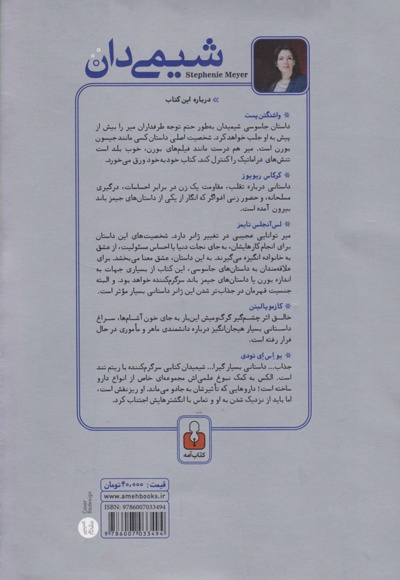 شیمی‌دان
Stephenie Meyer
» درباره این کتاب
واشنگتن پست
داستان جاسوسی شیمیدان به‌طور حتم توجه طرفداران میر را بیش از
پیش به او جلب خواهد کرد. شخصیت اصلی داستان کسی مانند جیسون
بورن است. میر هم درست مانند فیلم‌های بورن، خوب بلد است
تنش‌های دراماتیک را کنترل کند. کتاب خودبه‌خود ورق می‌خورد.
کرکاس ریویوز
داستانی درباره تقلب، مقاومت یک زن در برابر احساسات، درگیری
مسلحانه، و حضور زنی اغواگر که انگار از یکی از داستان‌های جیمز باند
بیرون آمده است.
لس‌آنجلس تایمز
میر توانایی عجیبی در تغییر ژانر دارد. شخصیت‌های این داستان
برای انجام کارهایشان، به جای نجات دنیا یا احساس مسئولیت، از عشق
به خانواده انگیزه می‌گیرند. به این داستان، عشق معنا می‌بخشد. برای
علاقه‌مندان به داستان‌های جاسوسی، این کتاب از بسیاری جهات به
اندازه بورن یا داستان‌های جیمز باند سرگرم‌کننده خواهد بود. و البته
جنسیت قهرمان در جذاب‌تر شدن این ژانر داستانی بسیار مؤثر است.
کازموپالیتن
خالق اثر چشم‌گیر گرگ‌ومیش این‌بار به جای خون آشام‌ها، سراغ
داستانی بسیار هیجان‌انگیز درباره دانشمندی ماهر و مأموری در حال
فرار رفته است.
یو اِس‌ اِی تودی
جذاب... داستانی بسیار گیرا... شیمیدان کتابی سرگرم‌کننده با ریتم تند
است. الکس به کمک نبوغ علمی‌اش مجموعه‌ای خاص از انواع دارو
ساخته است؛ داروهایی که تأثیرشان به جادو می‌ماند. او ریزنقش است،
اما باید از نزدیک شدن به او و تماس با انگشترهایش اجتناب کرد.
...
کتاب آمه
قیمت: ۴۰,۰۰۰ تومان
www.amehbooks.ir
ISBN: 9786007033494
9 786007 033494
Cover
Redesign